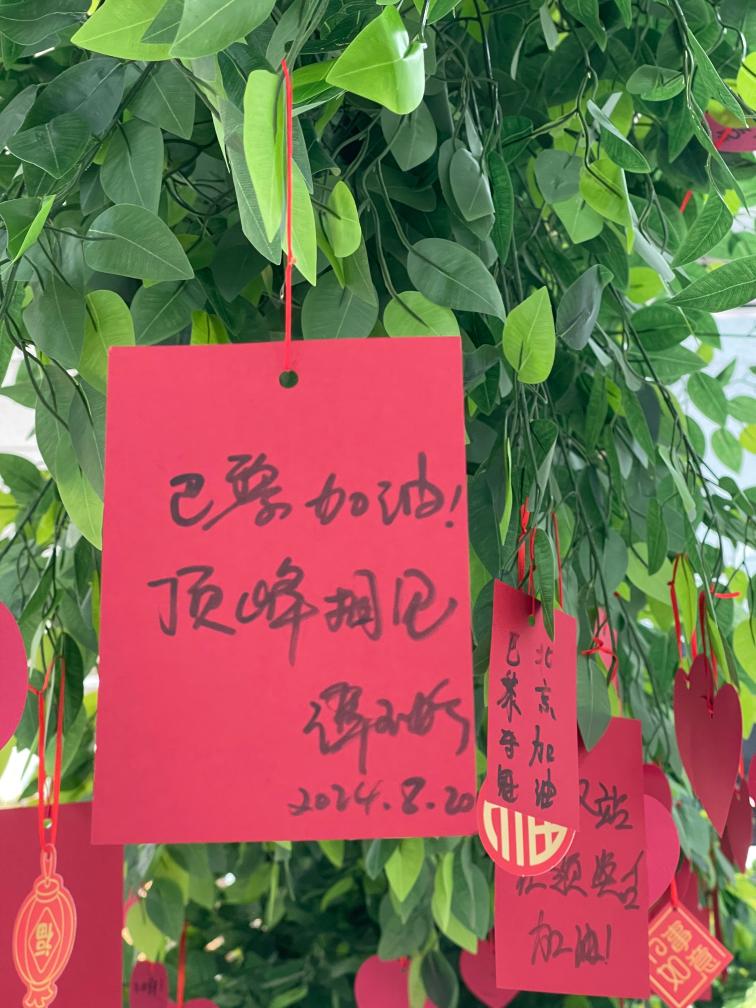 巴黎加油!
顶峰相见
谭玉娇
2024.8.20
北京加油
巴黎夺冠
站
加油!
福